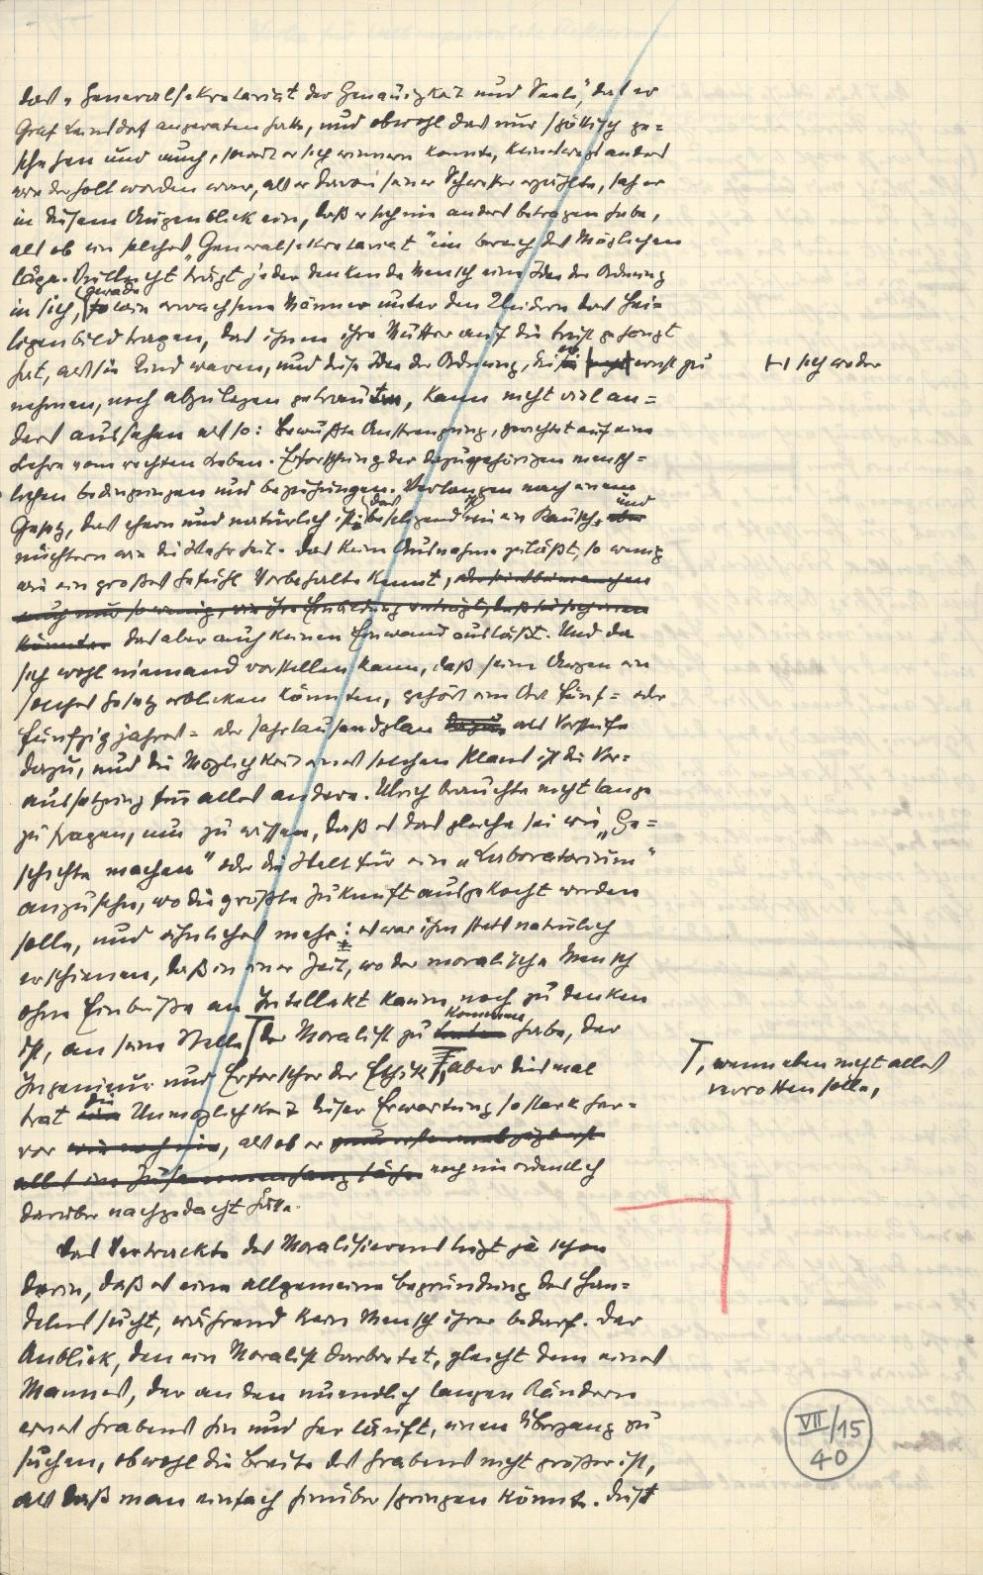 das „Generalsekretariat der Genauigkeit und Seele", das er
Graf Leinsdorf angeraten hatte, und obwohl das nur spöttisch ge=
schehen und auch, soweit er sich erinnern konnte, keineswegs anders
wiederholt worden war, als er davon seiner Schwester erzählte, sah er
in diesem Augenblick ein, daß er sich nie anders betragen habe,
als ob ein solches „Generalsekretariat" im Bereich des Möglichen
läge. Vielleicht trägt jeder denkende Mensch eine Idee der Ordnung
gerade
in sich, so wie erwachsene Männer unter den Kleidern das Hei=
ligenbild tragen, das ihnen ihre Mutter auf die Brust gehängt
hat, als sie Kind waren, und diese Idee der Ordnung, die ernst zu
sich weder
nehmen, noch abzulegen getrauten, kann nicht viel an=
ders aussehen als so: Bewußte Anstrengung, gerichtet auf eine
Lehre vom rechten Leben. Erforschung der dazugehörigen mensch=
lichen Bedingungen und Beziehungen. Verlangen nach einem
das und
Gesetz, das ehern und natürlich ist; beseligend wie ein Rausch, aber
nüchtern wie die Wahrheit. Das keine Ausnahme zuläßt, so wenig
wie ein großes Gefühl Vorbehalte kennt,
könnten das aber auch keinen Einwand ausläßt. Und da
sich wohl niemand vorstellen kann, daß seine Augen ein
solches Gesetz erblicken könnten, gehört eine Art Fünf= oder
Fünfzigjahres= oder Jahrtausendplan dazu als Vorstufe
dazu, und die Möglichkeit eines solchen Plans ist die Vor=
aussetzung für alles andere. Ulrich brauchte nicht lange
zu fragen, um zu wissen, daß es das gleiche sei wie „Ge=
schichte machen" oder die Welt für ein „Laboratorium"
anzusehn, wo die größte Zukunft ausgekocht werden
solle, und ähnliches mehr: es war ihm stets natürlich
erschienen, daß in einer Zeit, wo der moralische Mensch
ohne Einbuße an Intellekt kaum noch zu denken
kommen
ist, an seine Stelle der Moralist zu habe, der
, wenn eben nicht alles
verrotten solle,
Ingenieur und Erforscher der Ethik, aber diesmal
die
trat Unmöglichkeit dieser Erwartung so stark her=
vor wie noch nie, als ob er
noch nie ordentlich
darüber nachgedacht hätte.
Das Vertrackte des Moralisierens liegt ja schon
darin, daß es eine allgemeine Begründung des Han=
delns sucht, während kein Mensch ihrer bedarf. Der
Anblick, den ein Moralist darbietet, gleicht dem eines
Mannes, der an den unendlich langen Rändern
eines Grabens hin und her läuft, einen Übergang zu
suchen, obwohl die Breite des Grabens nicht größer ist,
als daß man einfach hinüber springen könnte. Dies
VII/15
40